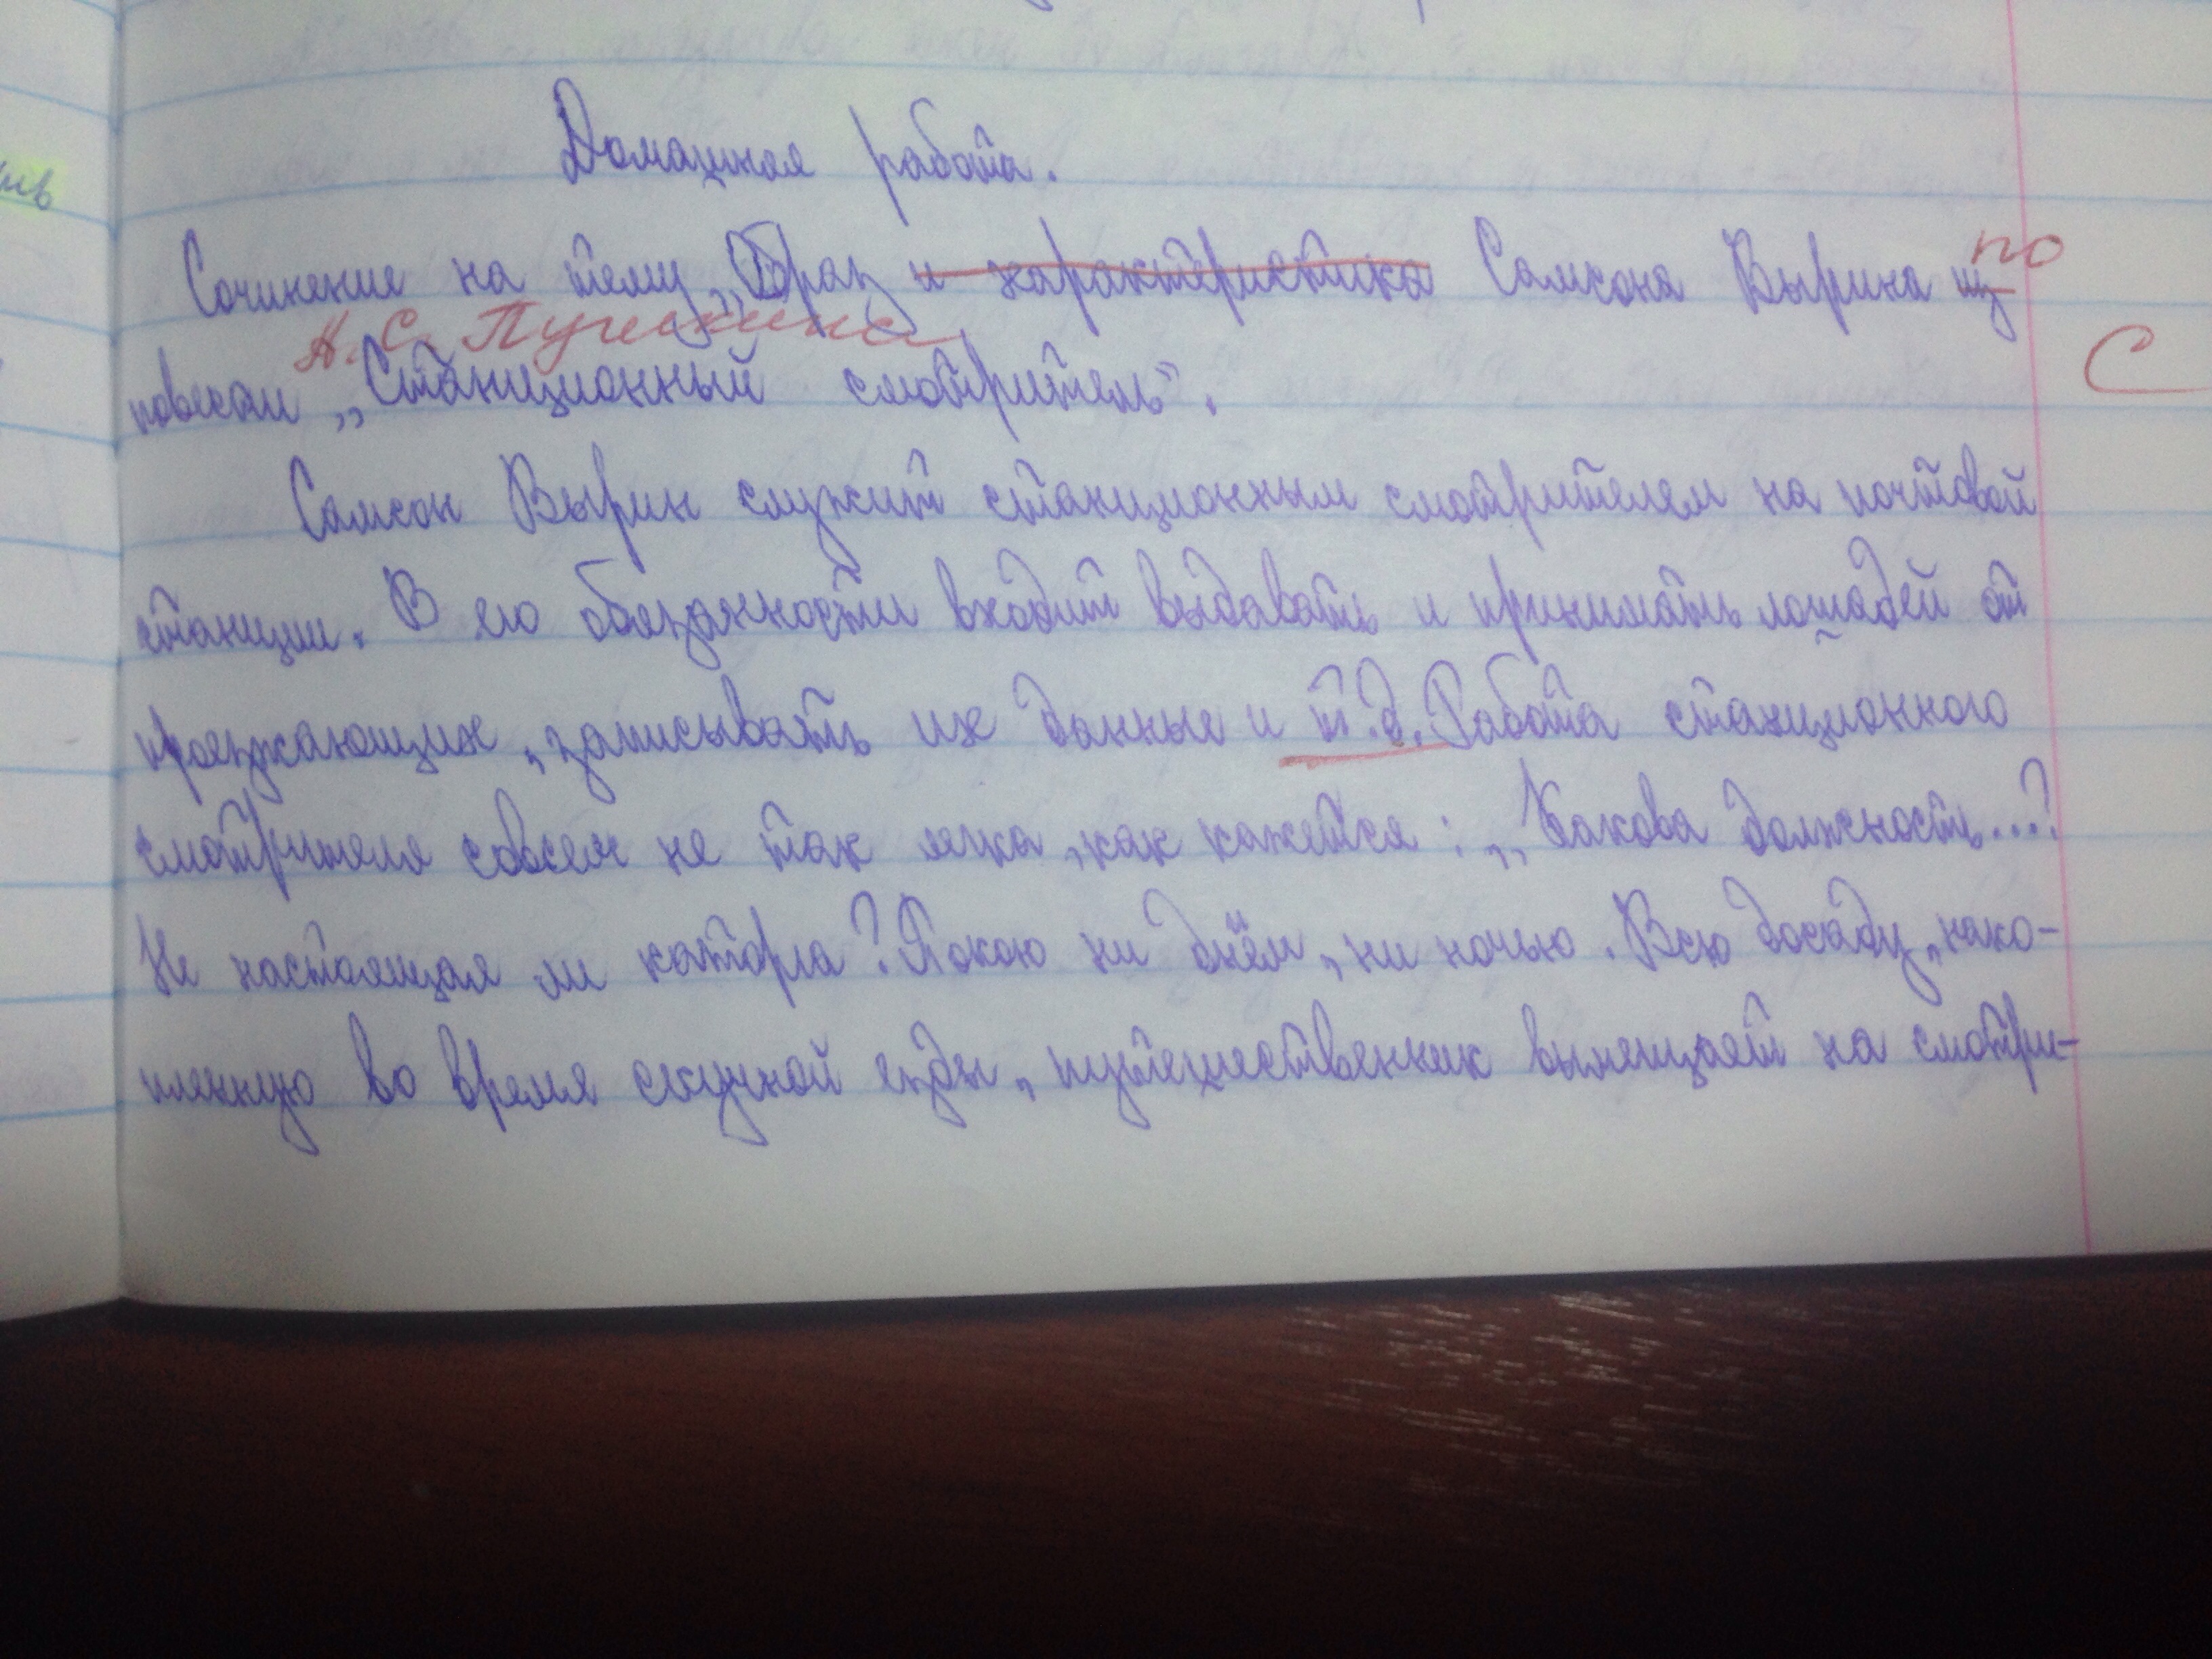 Домашняя работа.
Сочинение на тему „Образ и характеристика Самсона Вырина из
по
А. С. Пушкина
С
повести „Станционный смотритель".
Самсон Вырин служит станционным смотрителем на почтовой
станции. В его обязанности входит выдавать и принимать лошадей от
проезжающих, записывать их данные и т.д. Работа станционного
смотрителя совсем не так легка, как кажется: „Какова должность...?
Не настоящая ли каторга? Покою ни днём, ни ночью. Всю досаду, нако-
пленную во время скучной езды, путешественник вымещает на смотри-